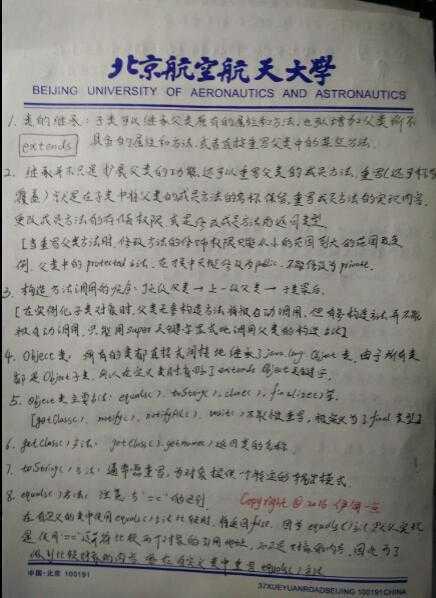 北京航空航天大學
BEIJING UNIVERSITY OF AERONAUTICS AND ASTRONAUTICS
1. 类的继承：子类可以继承父类原有的属性和方法，也可以增加父类所不
extends 具备的属性和方法，或者直接重写父类中的某些方法。
2. 继承并不只是扩展父类的功能，还可以重写父类的成员方法，重写(还可称为
覆盖)就是在子类中将父类的成员方法的名称保留，重写成员方法的实现内容，
更改成员方法的存储权限，或是修改成员方法的返回类型
[当重写父类方法时，修改方法的修饰权限只能从小的范围到大的范围改变
例，父类中的protected 方法，在子类中只能修改为public，不能修改为private.
3. 构造方法调用的顺序：顶级父类→上一级父类→子类
[在实例化子类对象时，父类无参构造方法将被自动调用，但有参构造方法并不能
被自动调用，只能用super关键字显式地调用父类的构造方法]
4. Object类，所有的类都直接或间接地继承了java.lang.Object类，由于所有类
都是Object子类，所以在定义类时省略了extends Object关键字，
5. Object类主要方法：equals(), toString(), clone(), finalize()等，
[getClass(), notify(), notifyAll(), wait() 不能被重写，被定义为了final类型]
6. getClass()方法： getClass().getname() 返回类的名称
7. toString()方法：通常需重写，为对象提供一个特定的输出模式
8. equals()方法： 注意与 "==" 的区别
Copyright @ 2016
在自定义的类中使用equals()方法比较时，将返回false，因为equals()方法默认实现
是使用"=="运算符比较两个对象的引用地址，而不是对象的内容，因此为了
做到比较对象的内容，要在自定义类中重写equals()方法
中国·北京 100191
37XUEYUANROADBEIJING 100191CHINA